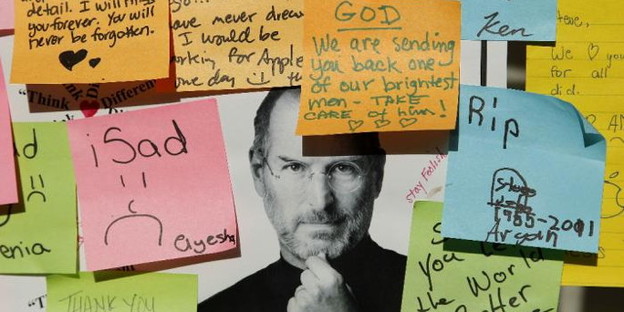 detail. I will miss
you forever. You will
never be forgotten.
"Think
Different
have never dream
I would be
working for Apple
one day
GOD
We are sending
you back one
of our brightest
men - TAKE
CARE of him!
Ken
Steve,
We ♡ you
for all
did.
Rip
Steve
Jobs
1955-2011
iSad
Ayesha
enia
stay Foolish
THANK YOU
you
the World
Better